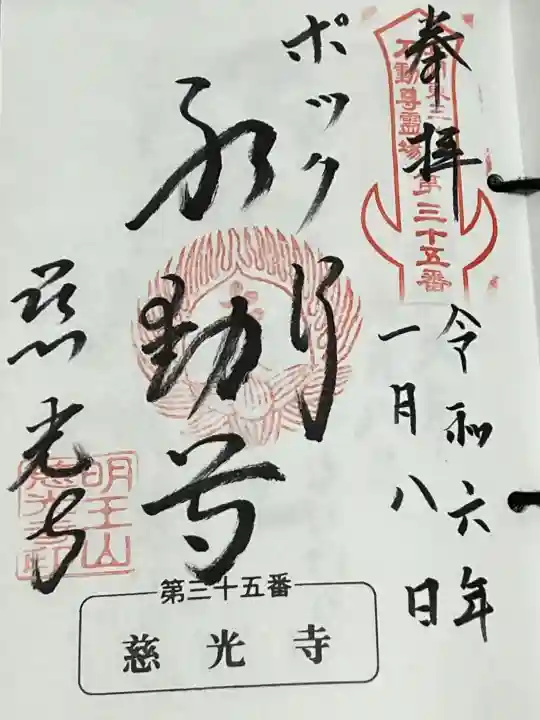 奉拝
関東三
不動尊霊場
第三十五番
令和六年
一月八日
ポックリ
不動尊
慈光寺
明王山
慈光寺印
第三十五番
慈光寺